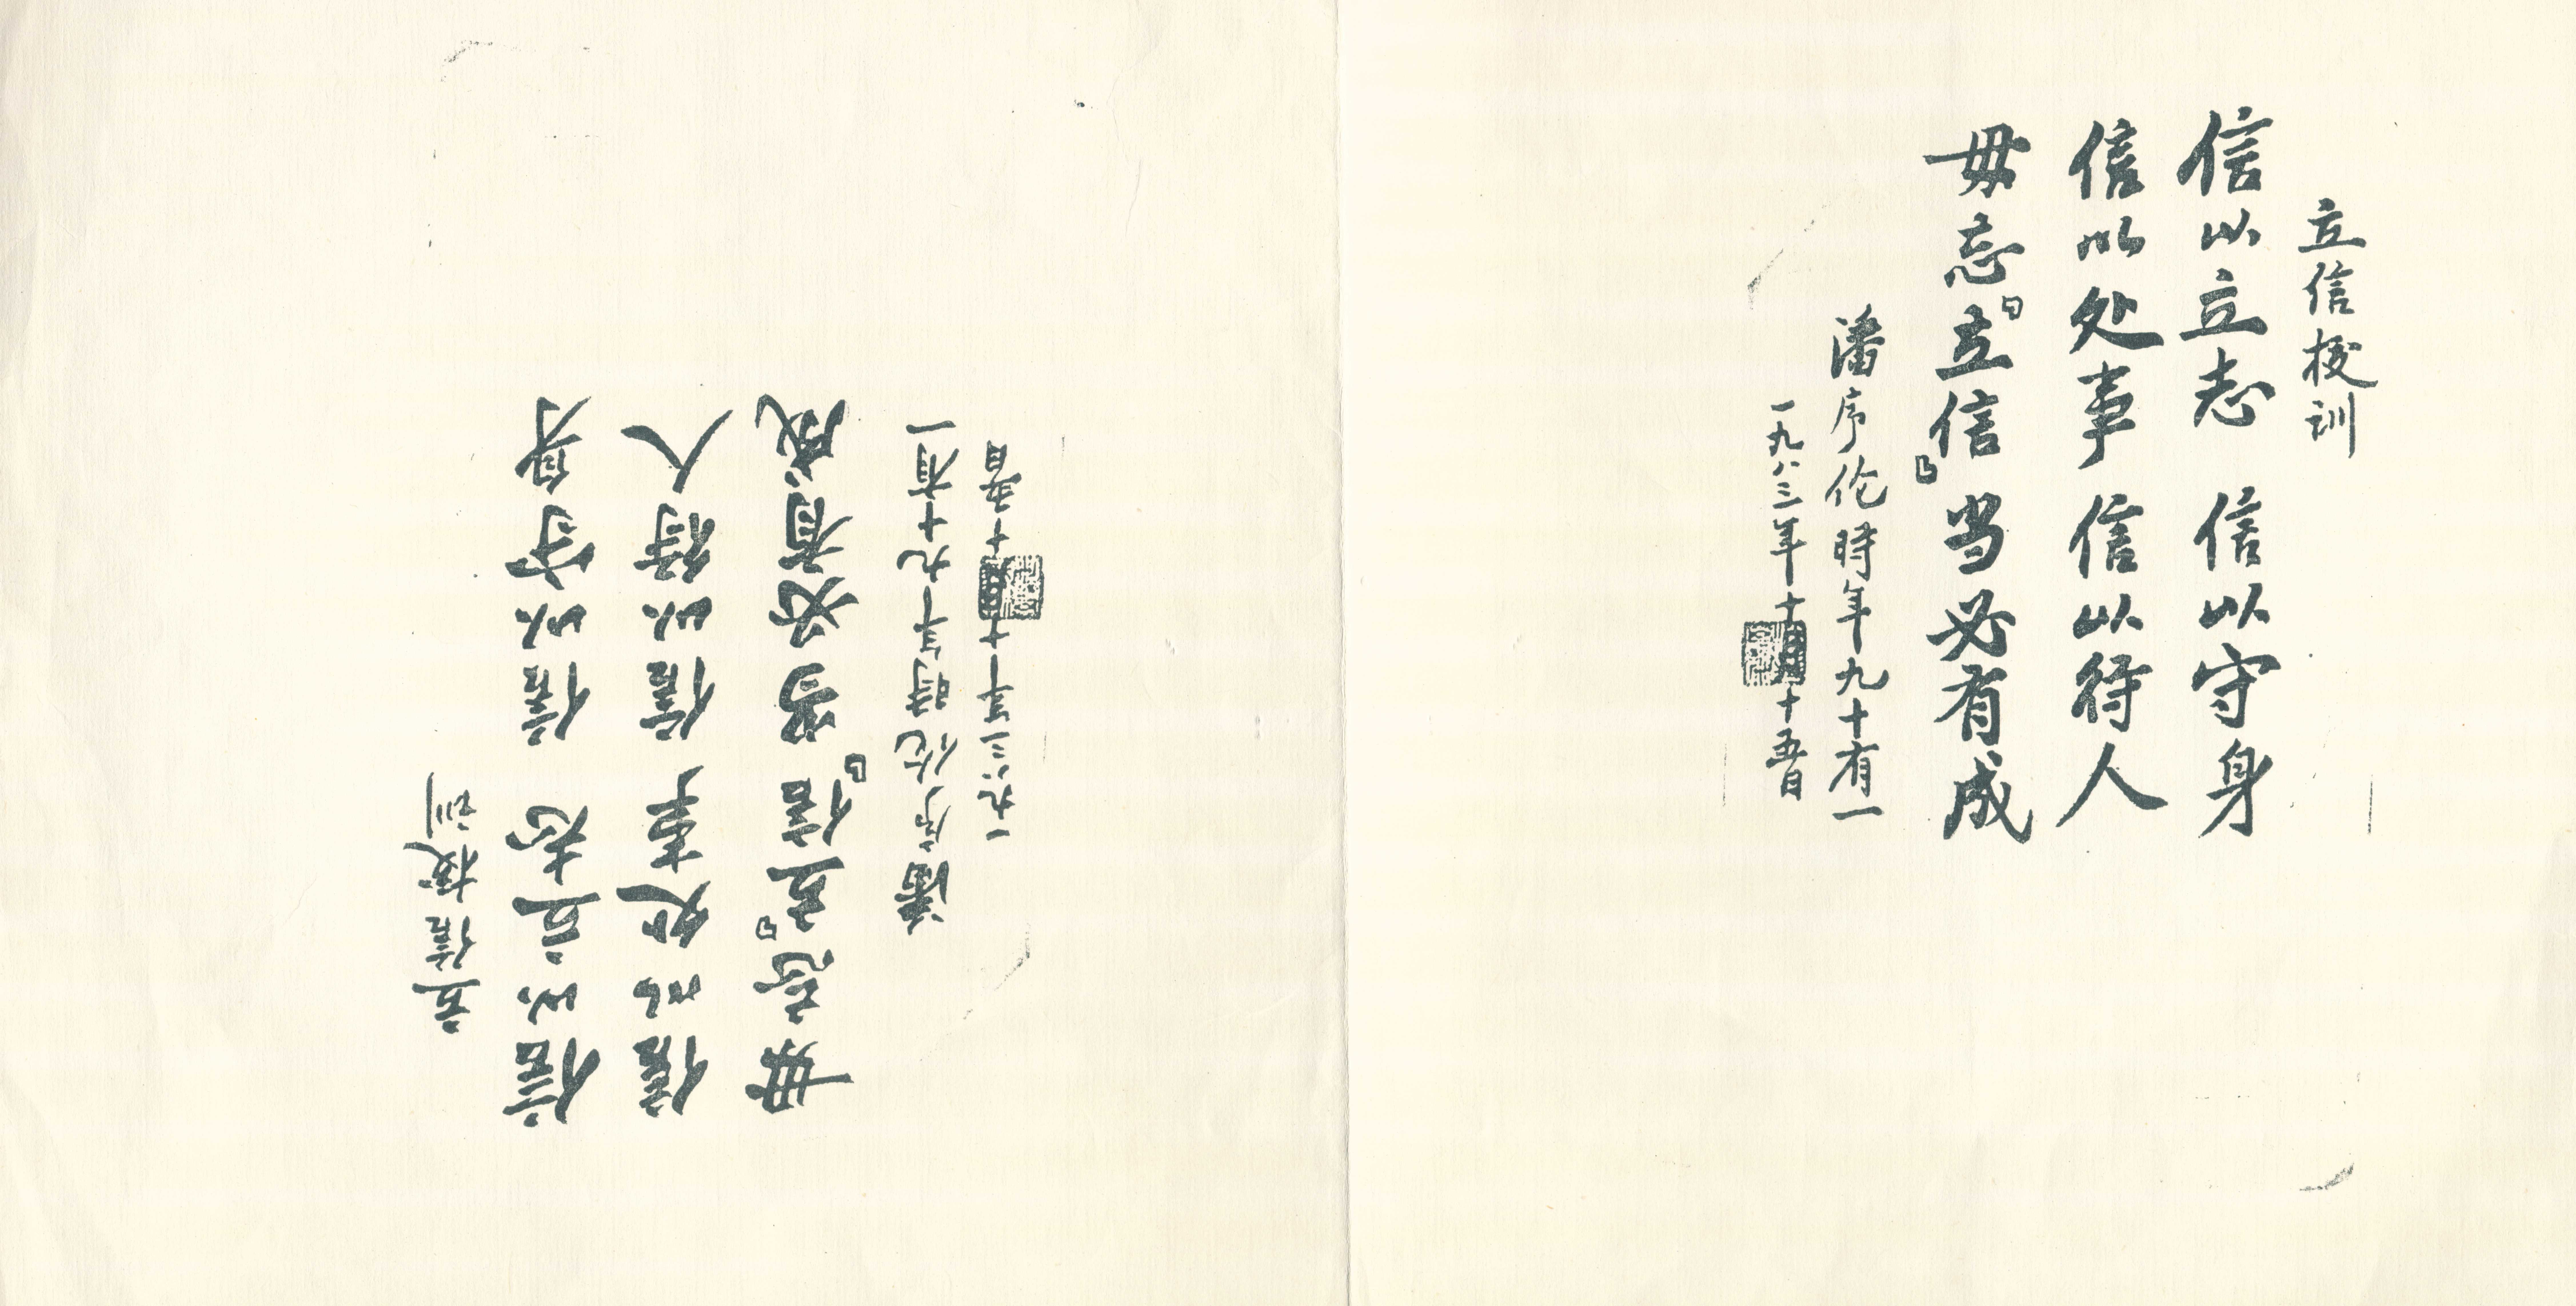 立信校训
信以立志 信以守身
信以处事 信以待人
毋忘『立信』当必有成
潘序伦時年九十有一
一九八三年十月十五日
立信校训
信以立志 信以守身
信以处事 信以待人
毋忘『立信』当必有成
潘序伦時年九十有一
一九八三年十月十五日